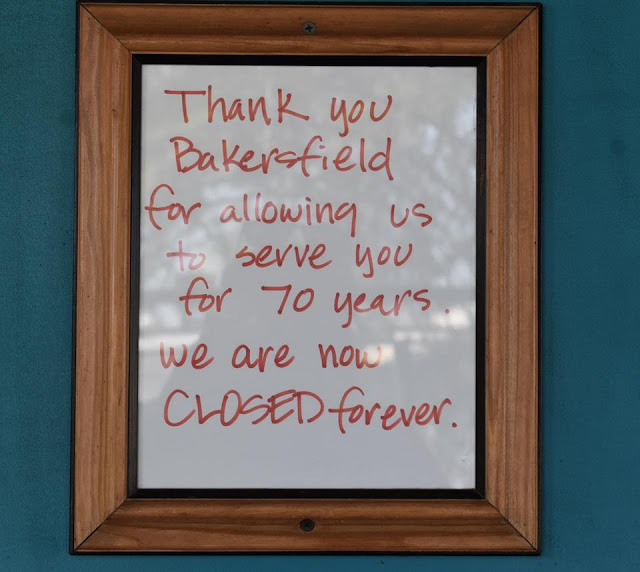 Thank you
Bakersfield
for allowing us
to serve you
for 70 years.
we are now
CLOSED forever.